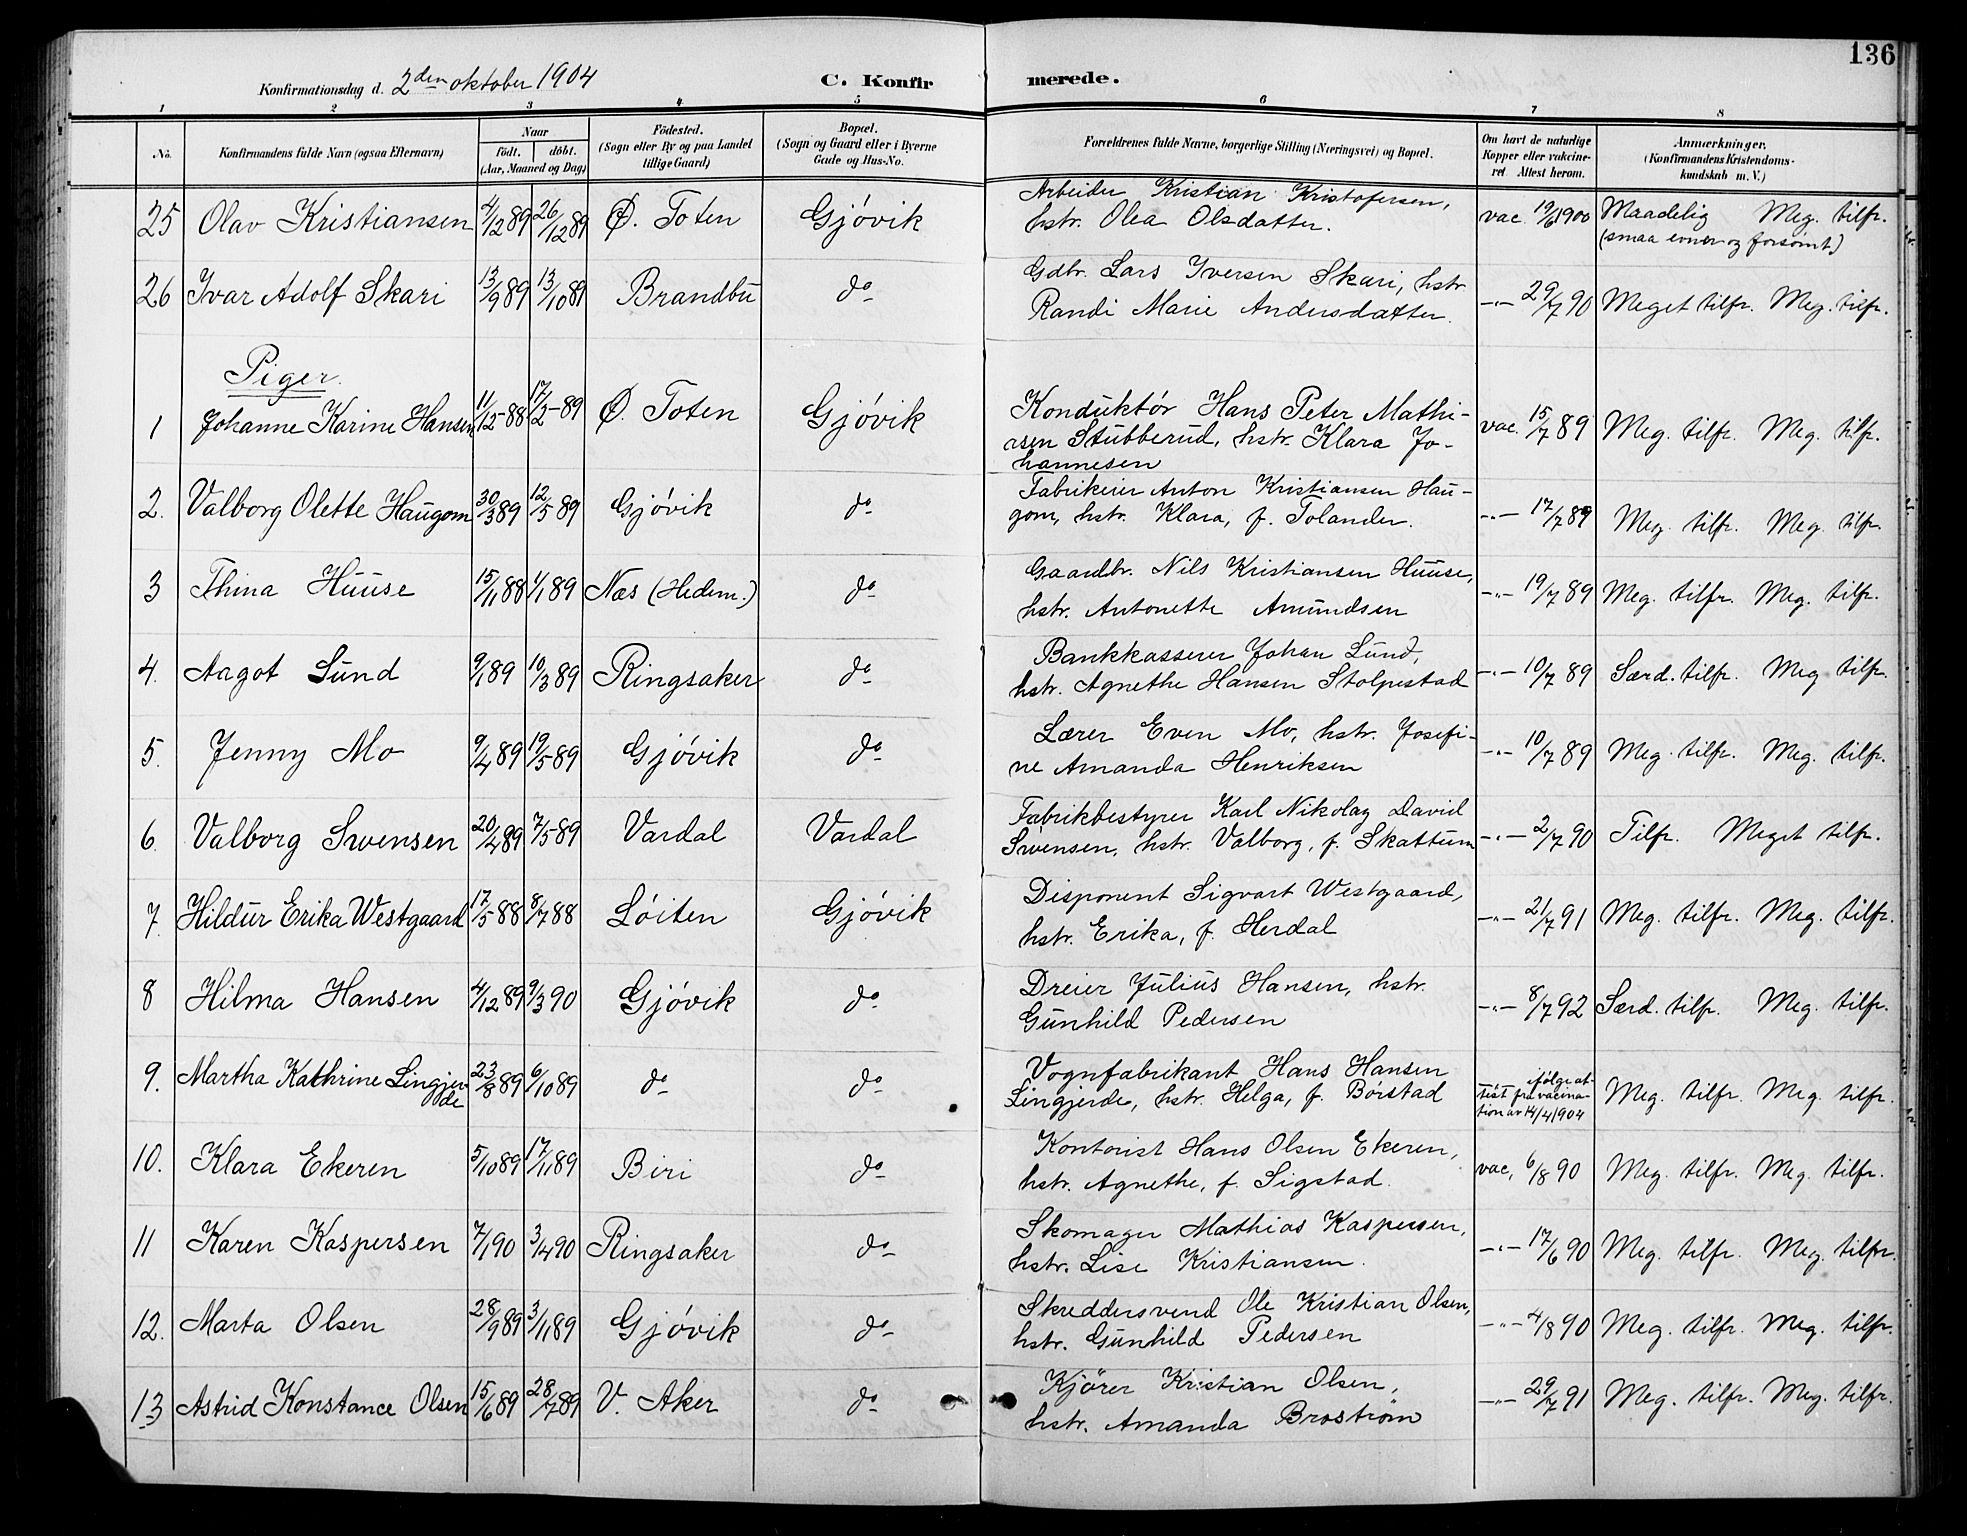 136
Konfirmationsdag d. 2den oktober 1904
C. Konfirmerede.
1 2 3 4 5 6 7 8
No. Konfirmandens fulde Navn (ogsaa Efternavn) Naar født. døbt. (Aar, Maaned og Dag) Fødested. (Sogn eller By og paa Landet tillige Gaard) Bopæl. (Sogn og Gaard eller i Byerne Gade og Hus-No. Forældrenes fulde Navne, borgerlige Stilling (Næringsvei) og Bopæl. Om havt de naturlige Kopper eller vakcineret. Attest herom. Anmærkninger. (Konfirmandens Kristendomskundskab m. V.)
25 Olav Kristiansen 4/12 89 26/12 89 Ø. Toten Gjøvik Arbeider Kristian Kristofersen, vac. 19/6 1900 Maadelig Meg. tilfr.
hstr. Olea Olsdatter. (smaa evner og forsømt)
26 Ivar Adolf Skari 13/9 89 13/10 89 Brandbu do Gdbr. Lars Iversen Skari, hstr. -"- 29/7 90 Meget tilfr. Meg. tilfr.
Randi Marie Andersdatter.
Piger.
1 Johanne Karine Hansen 11/12-88 17/2-89 Ø. Toten Gjøvik Konduktør Hans Peter Mathi- vac. 15/7 89 Meg. tilfr. Meg. tilfr.
sen Stubberud, hstr. Klara Jo-
hannesen
2. Valborg Olette Haugom 30/3 89 12/5 89 Gjøvik do Fabrikeier Anton Kristiansen Hau- -"- 17/7 89 Meg. tilfr. Meg. tilfr.
gom, hstr. Klara, f. Tolander.
3 Thina Huuse 15/11 88 1/1 89 Næs (Hedem.) do Gaardbr. Nils Kristiansen Huuse, -"- 19/7 89 Meg. tilfr. Meg. tilfr.
hstr. Antonette Amundsen
4. Aagot Lund 9/1 89 10/3 89 Ringsaker do Bankkasserer Johan Lund, -"- 10/7 89 Særd. tilfr. Meg tilfr.
hstr. Agnethe Hansen Stolpestad
5. Jenny Mo 9/4 89 19/5-89 Gjøvik do Lærer Even Mo, hstr. Josefi- -"- 10/7 89 Meg. tilfr. Meg. tilfr.
ne Amanda Henriksen
6. Valborg Swensen 20/4 89 7/5-89 Vardal Vardal Fabrikbestyrer Karl Nikolay David -"- 2/7 90 Tilfr. Meget tilfr.
Swensen, hstr. Valborg, f. Skattum
7. Hildur Erika Westgaard 17/5 88 8/7 88 Løiten Gjøvik Disponent Sigvart Westgaard, -"- 21/7 91 Meg. tilfr. Meg. tilfr.
hstr. Erika, f. Herdal
8 Hilma Hansen 4/12 89 9/3 90 Gjøvik do Dreier Julius Hansen, hstr. -"- 8/7 92 Særd. tilfr. Meg. tilfr.
Gunhild Pedersen
9. Martha Kathrine Lingjerde 23/8 89 6/10 89 do do Vognfabrikant Hans Hansen ifølge at- Meg. tilfr. Meg. tilfr.
Lingjerde, hstr. Helga, f. Børstad test fra vacina-
tion av 14/4 1904
10. Klara Ekeren 5/10 89 17/11 89 Biri do Kontorist Hans Olsen Ekeren, vac, 6/8 90 Meg. tilfr. Meg. tilfr.
hstr. Agnethe, f. Sigstad.
11 Karen Kaspersen 7/1 90 3/4 90 Ringsaker do Skomager Mathias Kaspersen, -"- 17/6 90 Meg. tilfr. Meg. tilfr.
hstr. Lise Kristiansen.
12. Marta Olsen 28/9 89 3/11 89 Gjøvik do Skreddersvend Ole Kristian Olsen, -"- 4/8 90 Meg. tilfr. Meg. tilfr.
hstr. Gunhild Pedersen
13 Astrid Konstance Olsen 15/6 89 28/7 89 V. Aker do Kjører Kristian Olsen, -"- 29/7 91 Meg. tilfr. Meg. tilfr.
hstr. Amanda Brostrøm